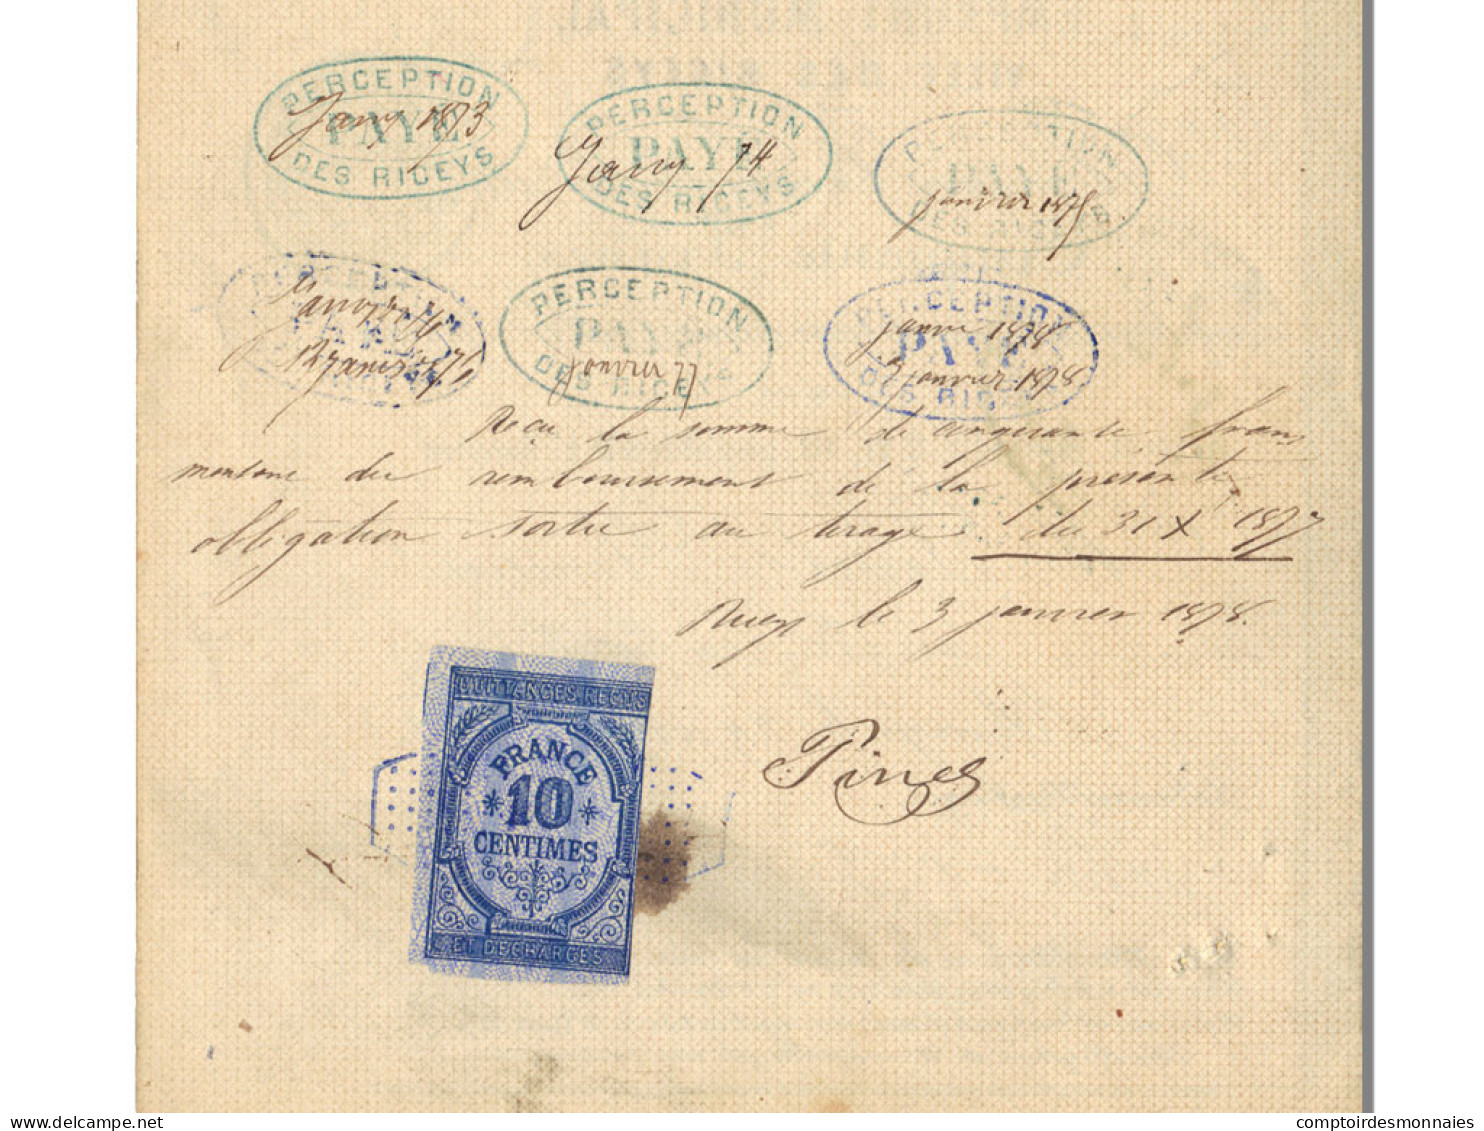 PERCEPTION
PAYÉ
DES RICEYS
Janv 1873
PERCEPTION
PAYÉ
DES RICEYS
Janv 74
PERCEPTION
PAYÉ
DES RICEYS
janvier 1875
PAYÉ
Janvier 76
janvier 76
PERCEPTION
PAYÉ
DES RICEYS
janvier 77
PERCEPTION
PAYÉ
DES RICEYS
janvier 1878
3 janvier 1878
Reçu la somme de cinquante francs
montant du remboursement de la présente
obligation sortie au tirage du 31 Xbre 1877
Riceys le 3 janvier 1878.
QUITTANCES REÇUS
FRANCE
10
CENTIMES
ET DECHARGES
comptoirdesmonnaies